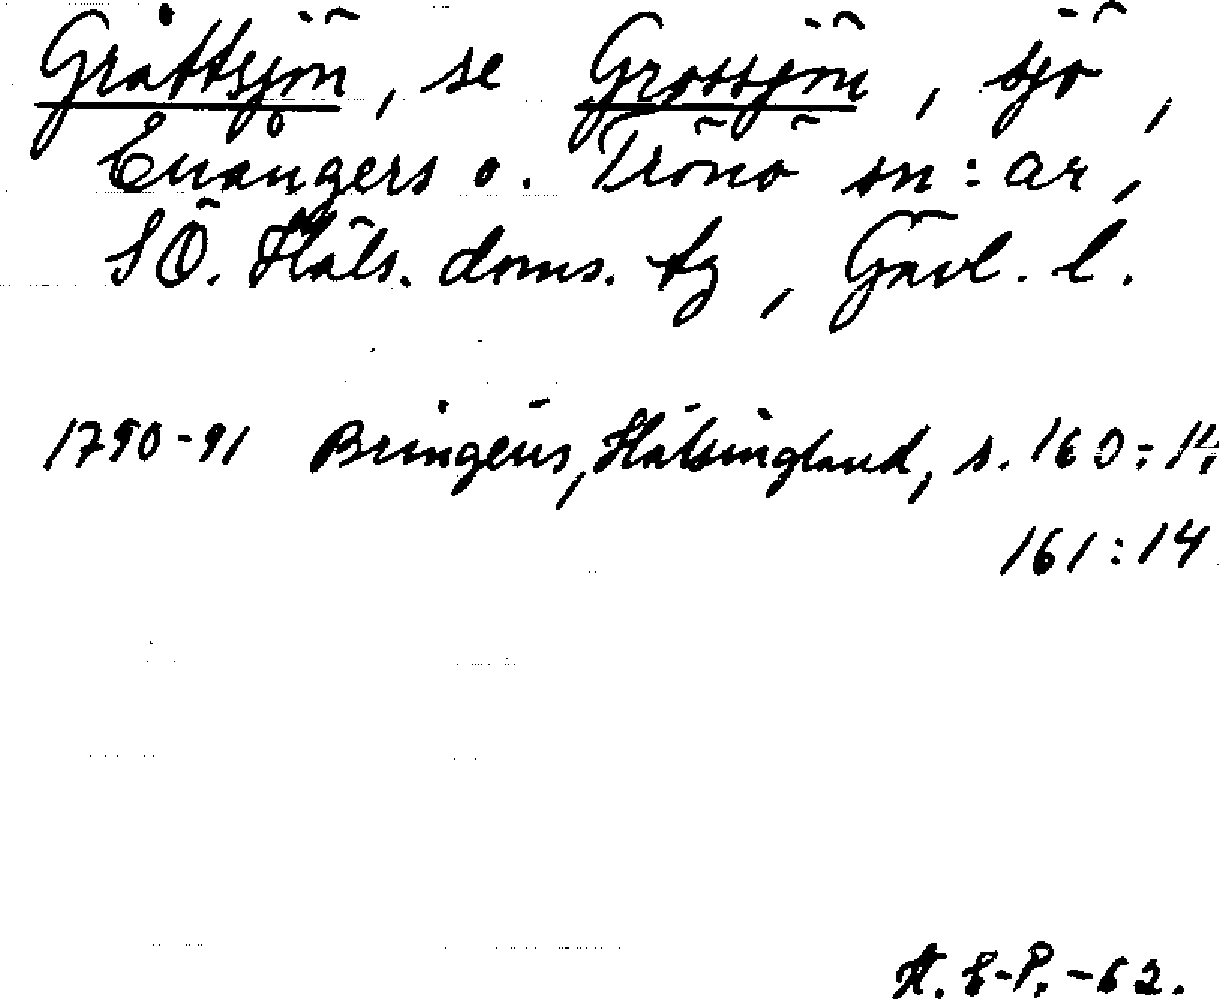 Gråttsjön, se Grossjön, sjö,
Enångers o. Trönö sn:ar,
SÖ. Häls. doms. tg, Gävl. l.
1790-91 Bringéus, Hälsingland, s. 160:14
161:14
A. E-P. -62.